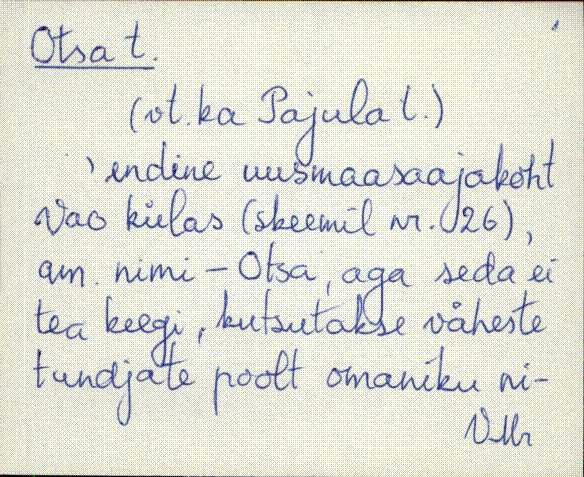 Otsa t.
(vt. ka Pajula t.)
endine uusmaasaajakoht
Vao külas (skeemil nr. 26),
am. nimi – Otsa, aga seda ei
tea keegi, kutsutakse väheste
tundjate poolt omaniku ni-
VMr